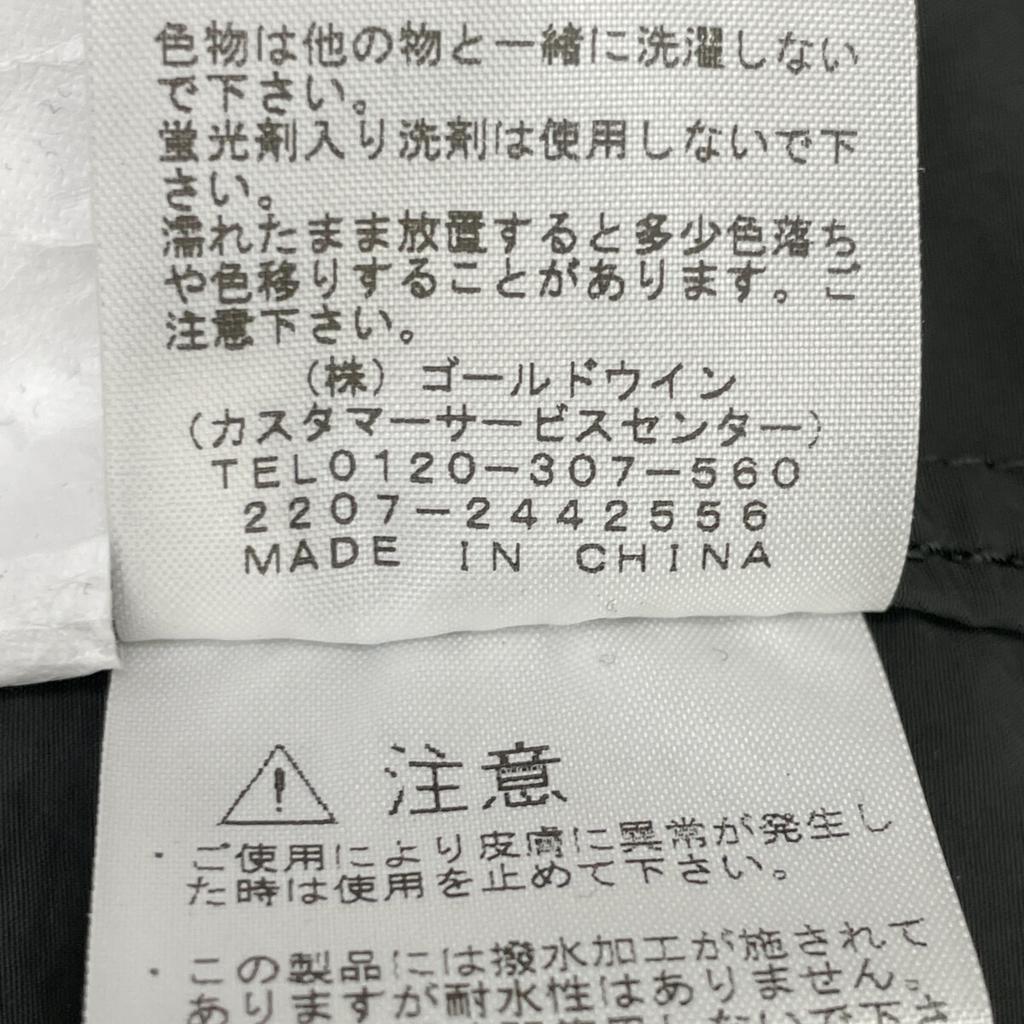 色物は他の物と一緒に洗濯しない
で下さい。
蛍光剤入り洗剤は使用しないで下
さい。
濡れたまま放置すると多少色落ち
や色移りすることがあります。ご
注意下さい。
(株)ゴールドウイン
(カスタマーサービスセンター)
TEL0120-307-560
2207-2442556
MADE IN CHINA
注意
・ご使用により皮膚に異常が発生し
た時は使用を止めて下さい。
・この製品には撥水加工が施されて
ありますが耐水性はありません。さ